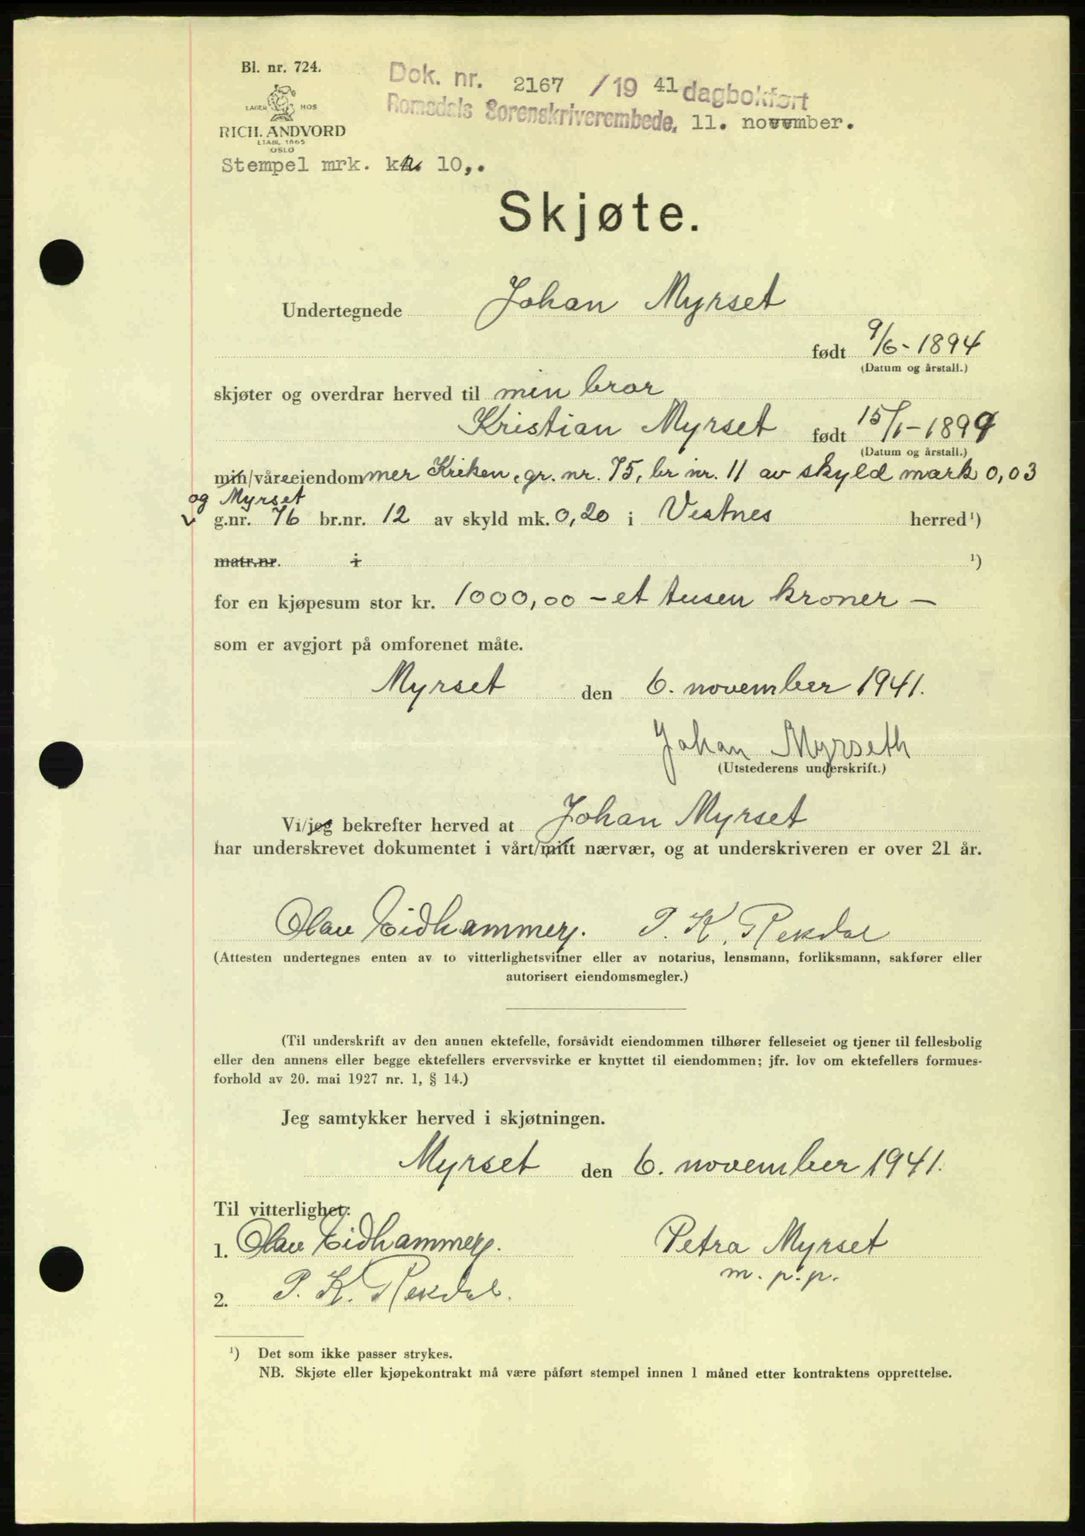 Bl. nr. 724.
LAGER HOS
RICH. ANDVORD
ETABL. 1865
OSLO
Dok. nr. 2167 /19 41 dagbokført
Romsdals Sorenskriverembede, 11. november.
Stempel mrk. kr. 10,.
Skjøte.
Undertegnede Johan Myrset
født 9/6-1894
(Datum og årstall.)
skjøter og overdrar herved til min bror
Kristian Myrset født 15/1-1899
(Datum og årstall.)
min/våre eiendommer Kriken, gr. nr. 75, br nr. 11 av skyld mark 0,03
og Myrset
g.nr. 76 br.nr. 12 av skyld mk. 0,20 i Vestnes herred¹)
matr.nr. i ¹)
for en kjøpesum stor kr. 1000,00 - et tusen kroner -
som er avgjort på omforenet måte.
Myrset den 6. november 1941.
Johan Myrseth
(Utstederens underskrift.)
Vi/jeg bekrefter herved at Johan Myrset
har underskrevet dokumentet i vårt/mitt nærvær, og at underskriveren er over 21 år.
Olav Eidhammer. P. K. Rekdal
(Attesten undertegnes enten av to vitterlighetsvitner eller av notarius, lensmann, forliksmann, sakfører eller
autorisert eiendomsmegler.)
(Til underskrift av den annen ektefelle, forsåvidt eiendommen tilhører felleseiet og tjener til fellesbolig
eller den annens eller begge ektefellers ervervsvirke er knyttet til eiendommen; jfr. lov om ektefellers formues-
forhold av 20. mai 1927 nr. 1, § 14.)
Jeg samtykker herved i skjøtningen.
Myrset den 6. november 1941.
Til vitterlighet:
1. Olav Eidhammer. Petra Myrset
m. p. p.
2. P. K. Rekdal.
¹) Det som ikke passer strykes.
NB. Skjøte eller kjøpekontrakt må være påført stempel innen 1 måned etter kontraktens opprettelse.